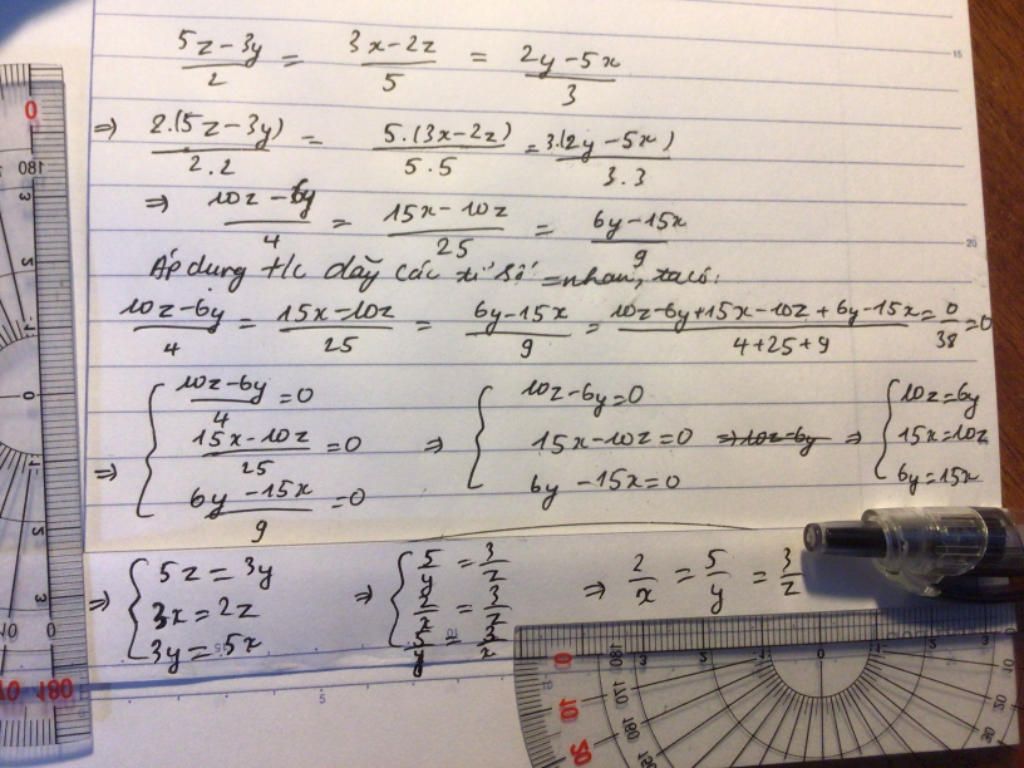 5z-3y/2 = 3x-2z/5 = 2y-5x/3
⇒ 2.(5z-3y)/2.2 = 5.(3x-2z)/5.5 = 3.(2y-5x)/3.3
⇒ 10z-6y/4 = 15x-10z/25 = 6y-15x/9
Áp dụng t/c dãy các tỉ số = nhau, ta có:
10z-6y/4 = 15x-10z/25 = 6y-15x/9 = 10z-6y+15x-10z+6y-15x/4+25+9 = 0/38 = 0
⇒ { 10z-6y/4 = 0 ⇒ { 10z-6y=0 ⇒ { 10z=6y
15x-10z/25 = 0 15x-10z=0 ⇒10z=6y 15x=10z
6y-15x/9 = 0 6y-15x=0 6y=15x
⇒ { 5z=3y ⇒ { 5/y = 3/z ⇒ 2/x = 5/y = 3/z
3x=2z 2/x = 3/z
3y=5x
15
20
5